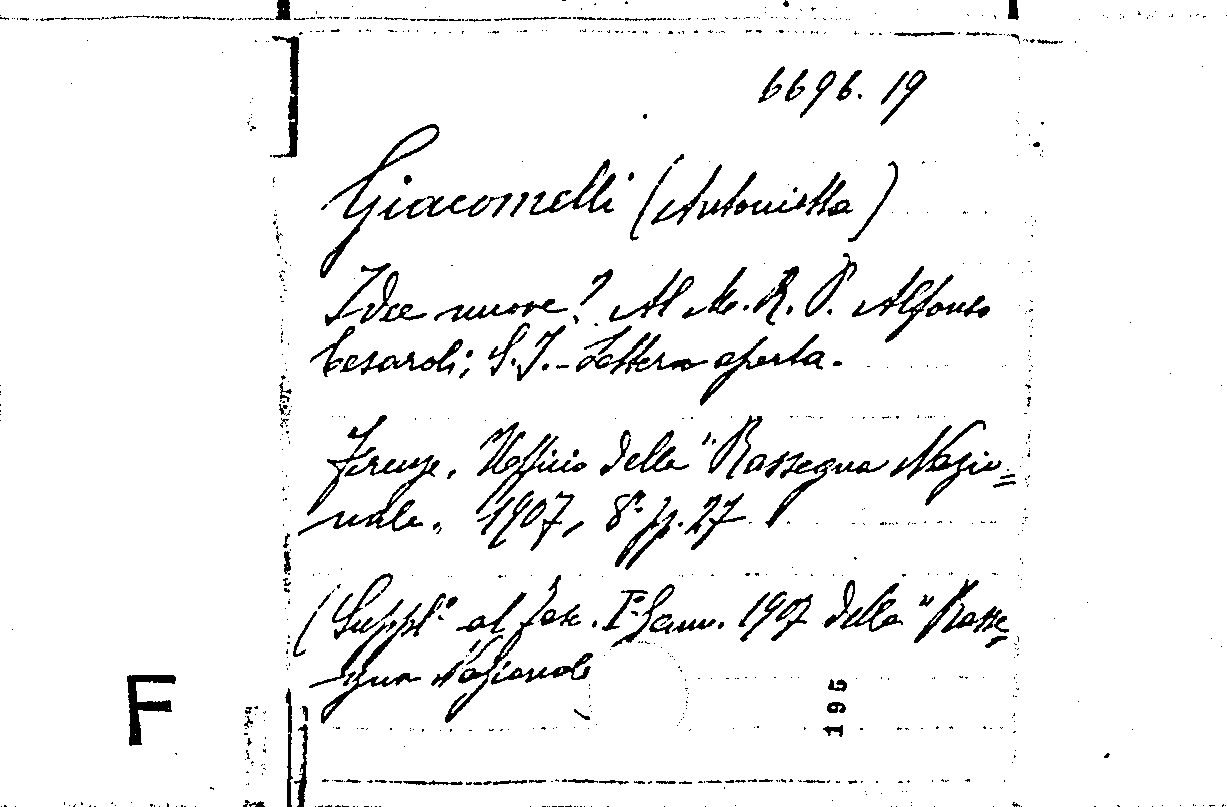 6696.19
Giacomelli (Antonietta)
Idee nuove? Al M. R. P. Alfonso
Cesaroli; S.J. - Lettera aperta.
Firenze. Ufficio della "Rassegna Nazio=
nale. 1907, 8° pp. 27
(Suppl° al fasc. I° Genn. 1907 della "Rasse=
gna Nazionale
F
195